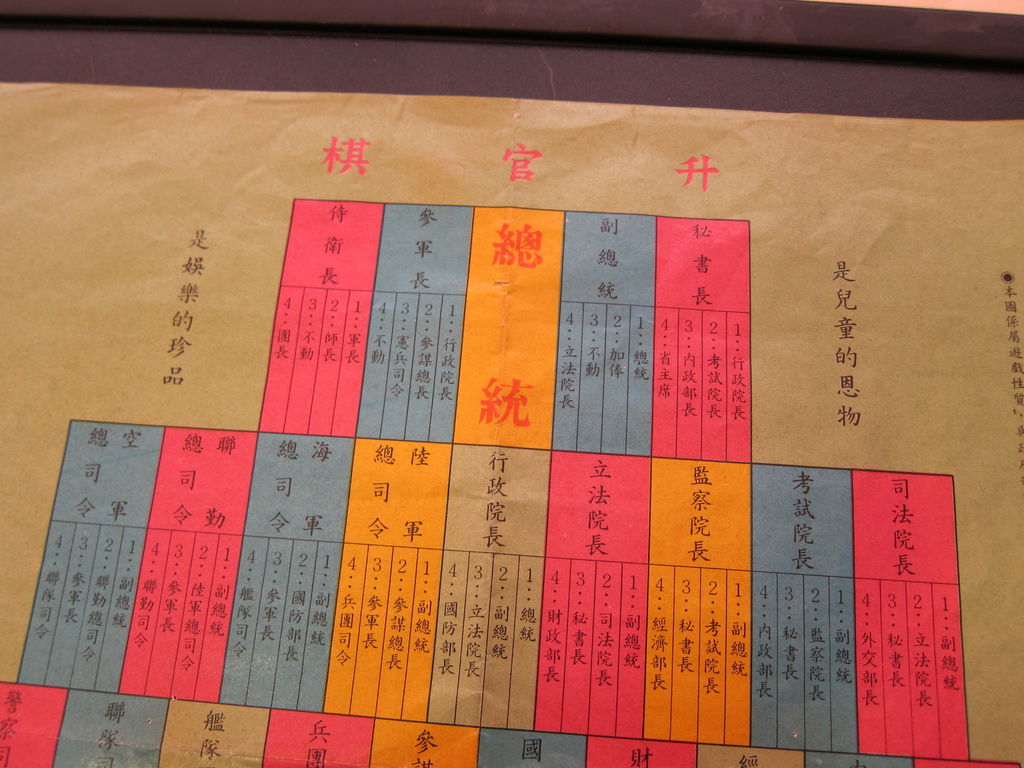 升官棋
是兒童的恩物
是娛樂的珍品
◉本圖係屬遊戲性質
秘書長
1‥行政院長
2‥考試院長
3‥內政部長
4‥省主席
副總統
1‥總統
2‥加俸
3‥不動
4‥立法院長
總統
參軍長
1‥行政院長
2‥參謀總長
3‥憲兵司令
4‥不動
侍衛長
1‥軍長
2‥師長
3‥不動
4‥團長
司法院長
1‥副總統
2‥立法院長
3‥秘書長
4‥外交部長
考試院長
1‥副總統
2‥監察院長
3‥秘書長
4‥內政部長
監察院長
1‥副總統
2‥考試院長
3‥秘書長
4‥經濟部長
立法院長
1‥副總統
2‥司法院長
3‥秘書長
4‥財政部長
行政院長
1‥總統
2‥副總統
3‥立法院長
4‥國防部長
陸軍
總司令
1‥副總統
2‥參謀總長
3‥參軍長
4‥兵團司令
海軍
總司令
1‥副總統
2‥國防部長
3‥參軍長
4‥艦隊司令
聯勤
總司令
1‥副總統
2‥陸軍總司令
3‥參軍長
4‥聯勤司令
空軍
總司令
1‥副總統
2‥聯勤總司令
3‥參軍長
4‥聯隊司令
經
財
國
參謀
兵團
艦隊
聯隊司
警察司